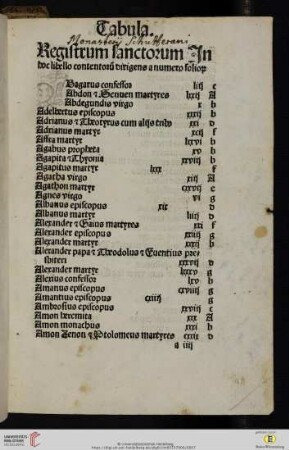 Tabula.
Monasterij Schutterani
Registrum sanctorum In
hoc libello contentorũ dirigens a numero folioꝝ
Bagatus confessor liij c
Abdon ⁊ Sennen martyres lxxij A
Abdegundis virgo x b
Adelbertus episcopus xxxij d
Adrianus ⁊ xxj d
Adrianus martyr xcij f
Affra martyr lxvj b
Agabus propheta xv b
Agapita ⁊ Thyonia xxviij b
Agapitus martyr lxx f
Agatha virgo xij A
Agathon martyr cxxj c
Agnes virgo vj g
Albanus episcopus xix d
Albanus martyr liij d
Alexander ⁊ Gaius martyres xxj f
Alexander episcopus xxiij g
Alexander martyr xxxj b
Alexander papa ⁊ Theodolus ⁊ Euentius pres
biteri xxxvij d
Alexander martyr lxxv g
Alexius confessor lxv b
Amandus episcopus cxviij g
Amantius episcopus cxiiij g
Ambrosius episcopus xxviij c
Amon heremita xix A
Amon monachus xxxj b
Amon Zenon ⁊ Ptolomeus martyres cxxix d
a iiij